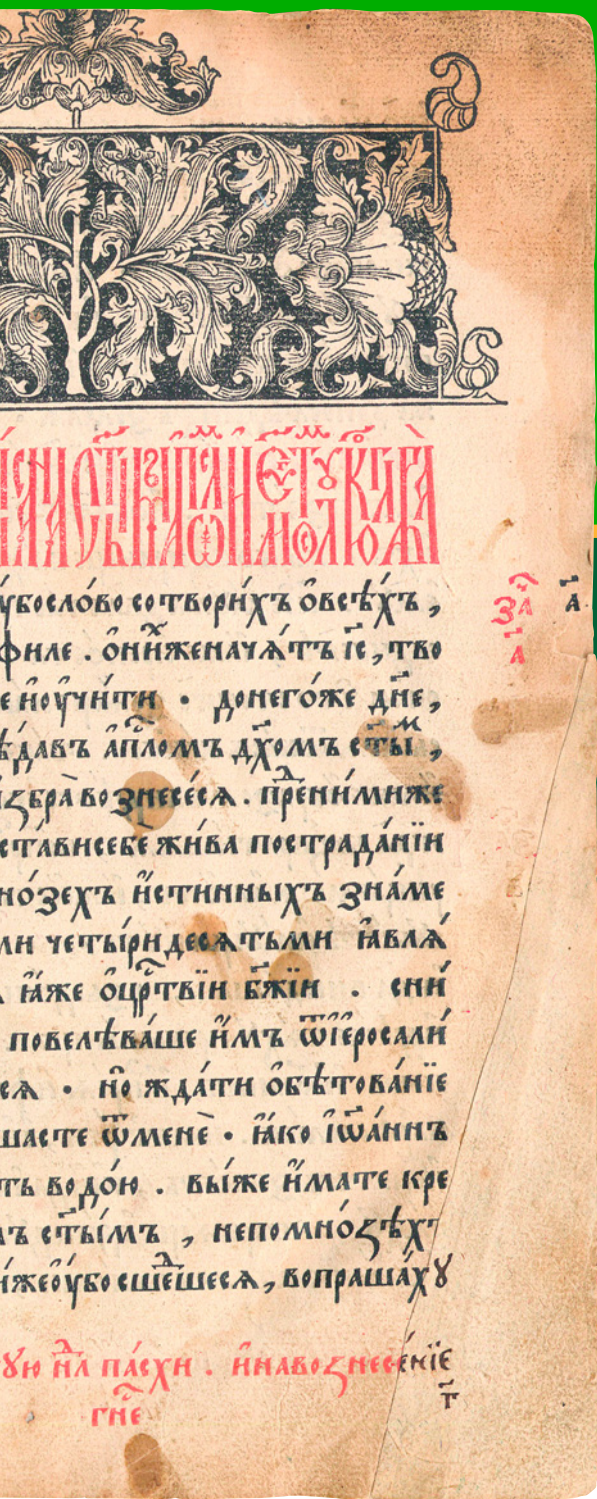 ꙋбосло́во сотвори́хъ о҆всѣ́хъ ,
филе . о҆ни́хже нача́тъ і҆с , тво
е и҆оу҆чи́ти · донего́же дн҃е ,
ѣдавъ а҆п҃ломъ дх҃омъ ст҃ы́м ,
и҆ꙁбра̀ воꙁнесе́сѧ . пре́ними же
ста́ви себѐ жи́ва пострада́нїи
но́зехъ и҆́стинныхъ зна́ме
ми четы́ридесѧтьми ꙗ҆влѧ́
ꙗ҆́же о҆цр҃твїи бж҃їи . сни́
повелѣва́ше и҆̀мъ ѿі҆еросали́
сѧ · но̀ жда́ти о҆бѣтова́нїе
шасте ѿменѐ · ꙗ҆́ко і҆ѡа́ннъ
ть водо́ю . вы́же и҆́мате кре
мъ ст҃ы́мъ , непомно́ꙁѣхъ
и҆́же оу҆́бо сше́дшесѧ , вопраша́хꙋ
ꙋю нл҃ па́схи . и҆на воꙁнесе́нїе
гн҃е
за҃ а҃
а҃